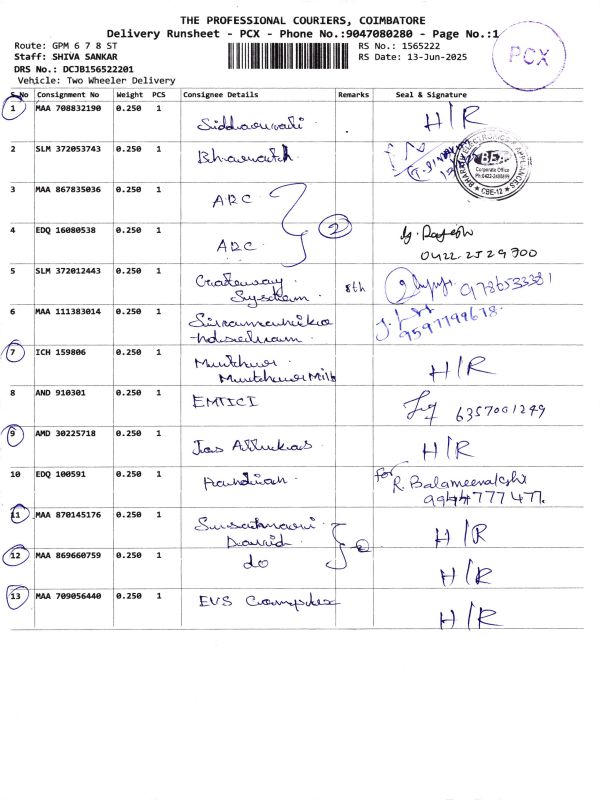 THE PROFESSIONAL COURIERS, COIMBATORE
Delivery Runsheet - PCX - Phone No.:9047080280 - Page No.:1
Route: GPM 6 7 8 ST
Staff: SHIVA SANKAR
DRS No.: DCJB156522201
Vehicle: Two Wheeler Delivery
RS No.: 1565222
RS Date: 13-Jun-2025
PCX
S.No Consignment No Weight PCS Consignee Details Remarks Seal & Signature
1 MAA 708832190 0.250 1 H/R
2 SLM 372053743 0.250 1
BHARATH ELECTRONICS & APPLIANCES
BEA
Corporate Office
CBE-12
3 MAA 867835036 0.250 1 ARC
2
4 EDQ 16080538 0.250 1 ARC
0422.2529300
5 SLM 372012443 0.250 1 8th
6 MAA 111383014 0.250 1
9597799678
7 ICH 159806 0.250 1 H/R
8 AND 910301 0.250 1 EMTICI 6357001249
9 AMD 30225718 0.250 1 Jos Allukas H/R
10 EDQ 100591 0.250 1 for
R. Balameenakshi
9944777477
11 MAA 870145176 0.250 1 H/R
12 MAA 869660759 0.250 1 do 2 H/R
13 MAA 709056440 0.250 1 EVS Complex H/R